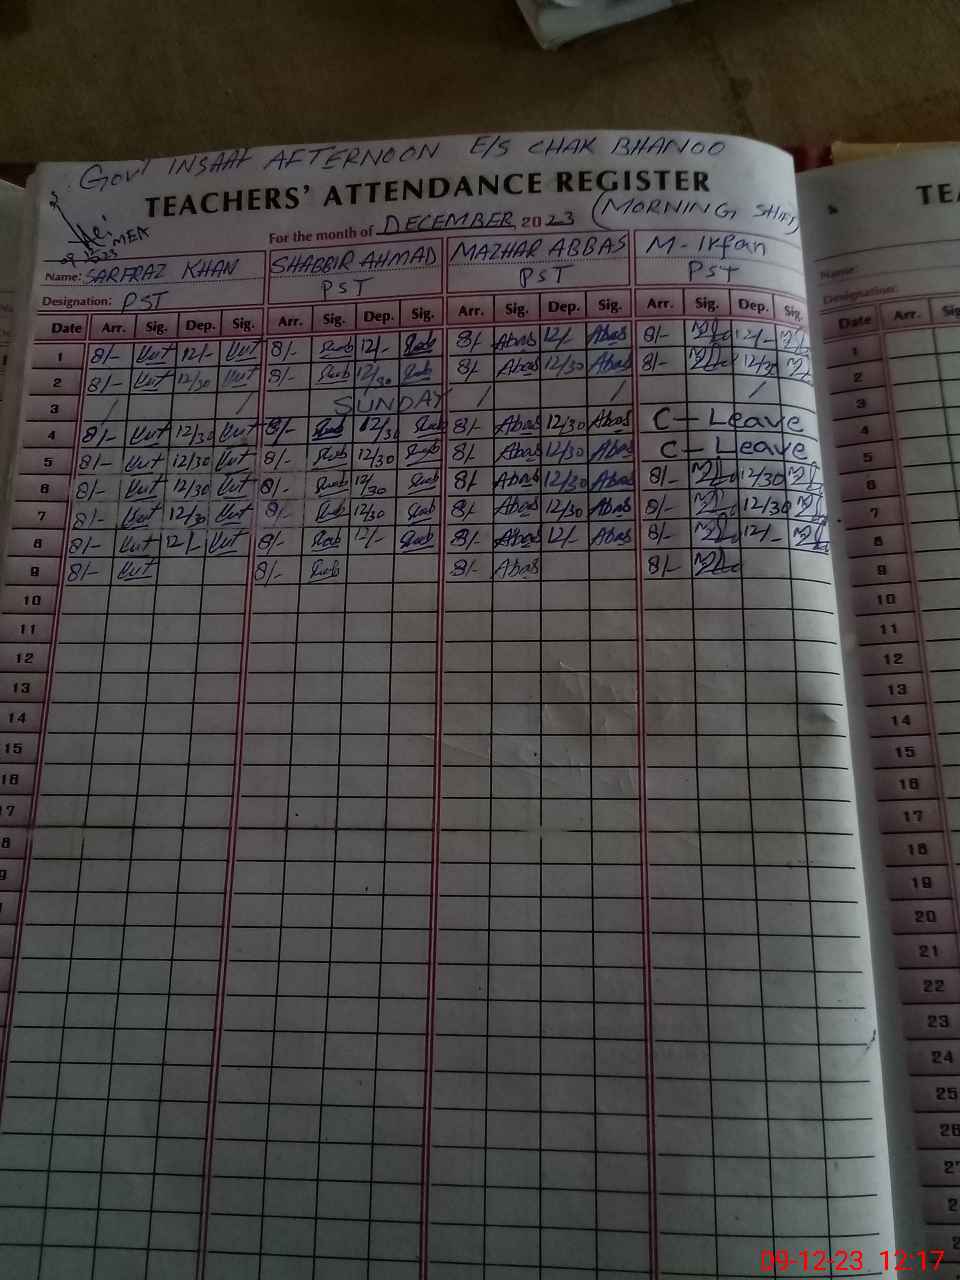 Govt INSAAF AFTERNOON E/S CHAK BHANOO
TEACHERS' ATTENDANCE REGISTER
For the month of DECEMBER 2023 (MORNING SHIFT)
MEA
Name: SARFRAZ KHAN SHABBIR AHMAD MAZHAR ABBAS M-Irfan
Designation: PST PST PST PST
Date Arr. Sig. Dep. Sig. Arr. Sig. Dep. Sig. Arr. Sig. Dep. Sig. Arr. Sig. Dep. Sig.
1 8/- 12/- 8/- 12/- 8/- Abas 12/- Abas 8/- 12/-
2 8/- 12/30 8/- 12/30 8/- Abas 12/30 Abas 8/- 12/30
3 / / SUNDAY / / /
4 8/- 12/30 8/- 12/30 8/- Abas 12/30 Abas C - Leave
5 8/- 12/30 8/- 12/30 8/- Abas 12/30 Abas C - Leave
6 8/- 12/30 8/- 12/30 8/- Abas 12/30 Abas 8/- 12/30
7 8/- 12/30 8/- 12/30 8/- Abas 12/30 Abas 8/- 12/30
8 8/- 12/- 8/- 12/- 8/- Abas 12/- Abas 8/- 12/-
9 8/- 8/- 8/- Abas 8/-
10
11
12
13
14
15
16
17
18
19
TEA
Name:
Designation:
Date Arr. Sig
1
2
3
4
5
6
7
8
9
10
11
12
13
14
15
16
17
18
19
20
21
22
23
24
25
26
27
09-12-23 12:17